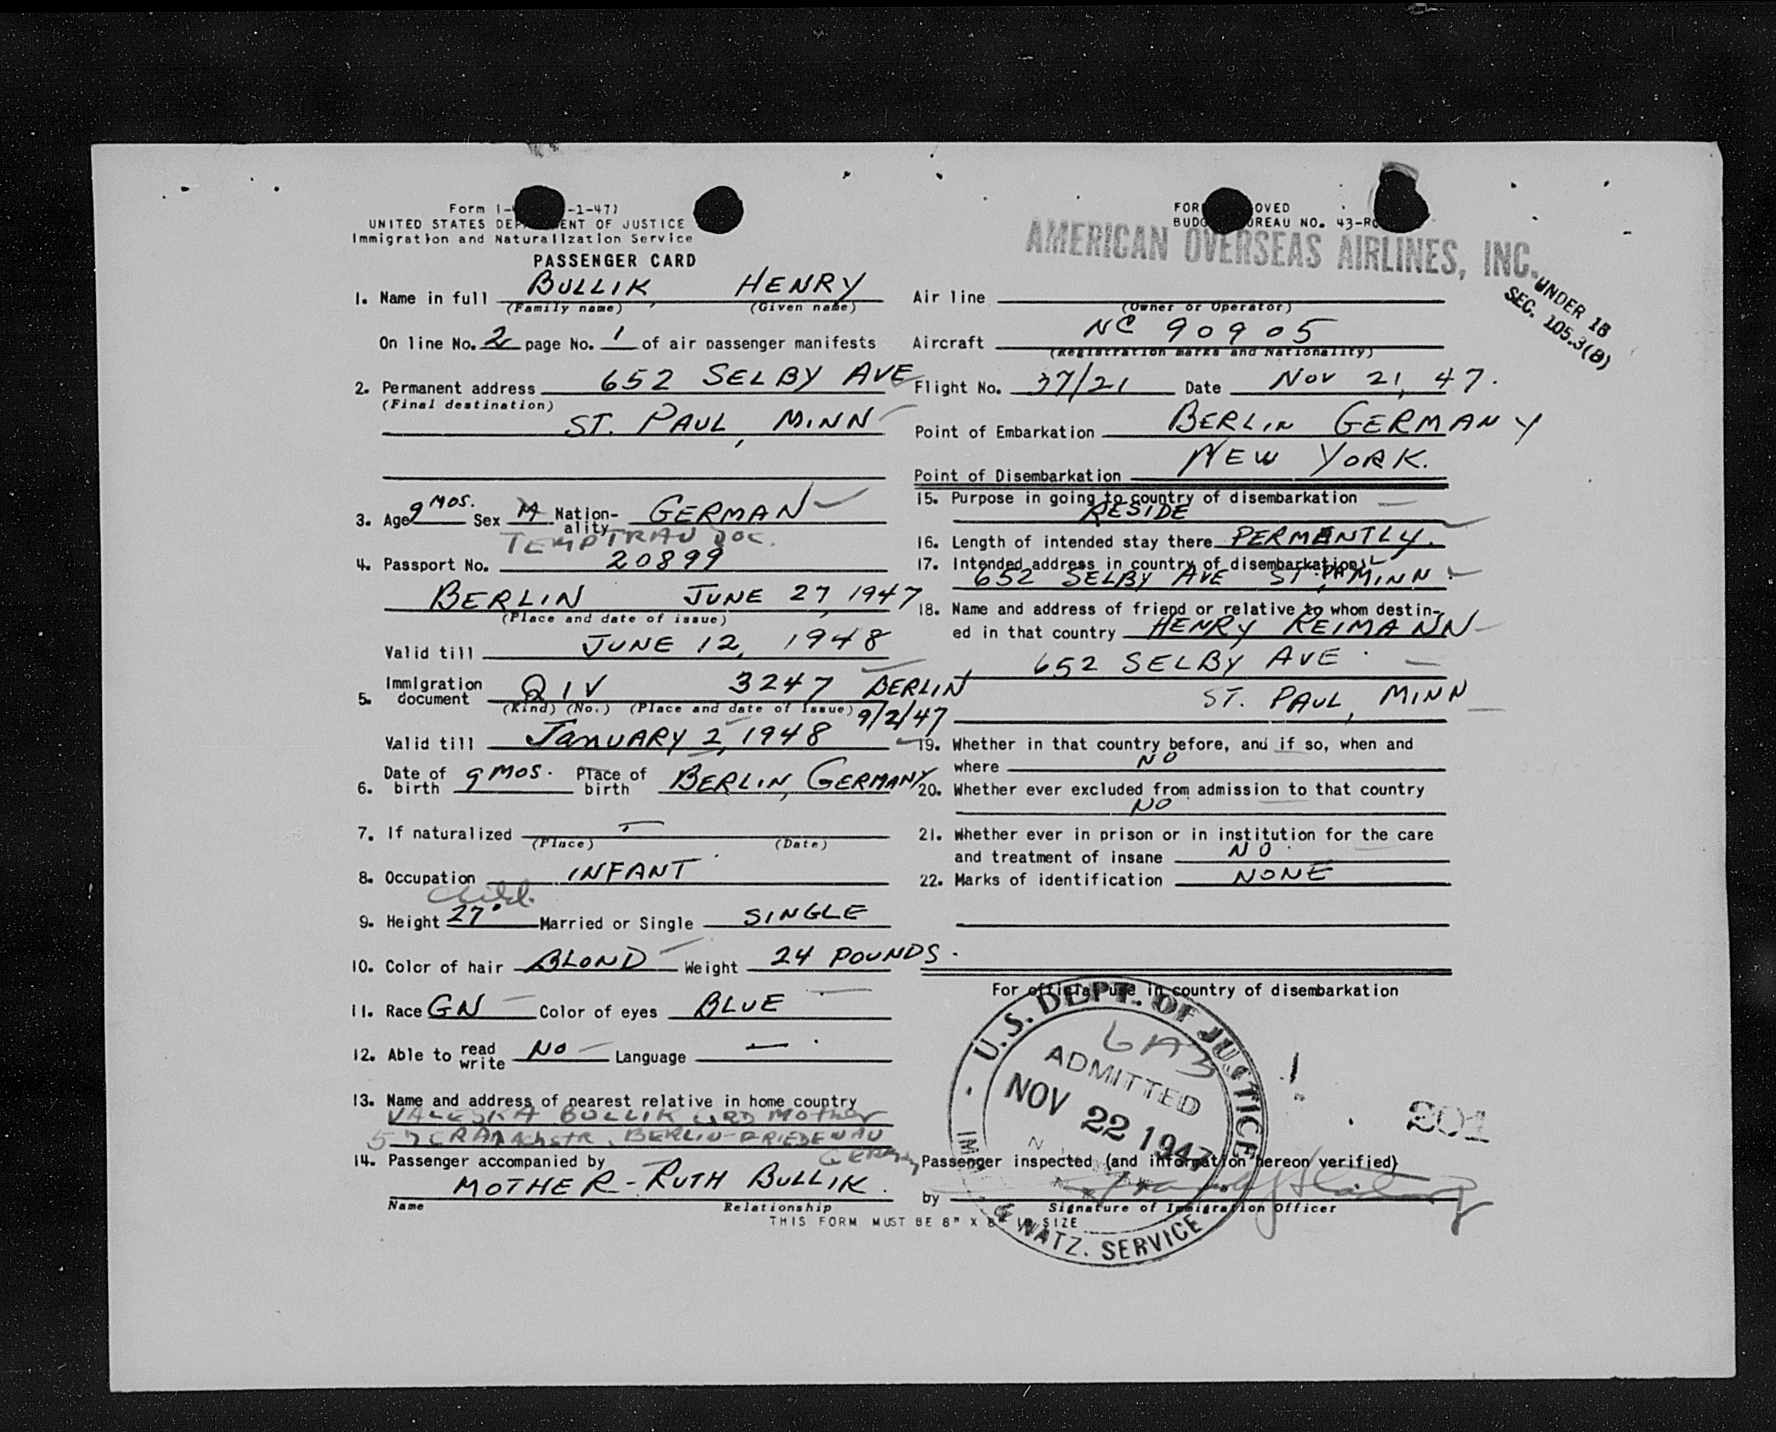 Form I- -1-47)
UNITED STATES DEP ENT OF JUSTICE
Immigration and Naturalization Service
PASSENGER CARD
1. Name in full BULLIK, HENRY
(Family name) (Given name)
On line No. 2 page No. 1 of air passenger manifests
2. Permanent address 652 SELBY AVE
(Final destination)
ST. PAUL, MINN
3. Age 9 MOS. Sex M Nation-ality GERMAN
TEMP TRAV DOC.
4. Passport No. 20899
BERLIN JUNE 27, 1947
(Place and date of issue)
Valid till JUNE 12, 1948
5. Immigration document QIV 3247 BERLIN
(Kind) (No.) (Place and date of issue) 9/2/47
Valid till JANUARY 2, 1948
6. Date of birth 9 MOS. Place of birth BERLIN, GERMANY
7. If naturalized —
(Place) (Date)
8. Occupation INFANT
child
9. Height 27" Married or Single SINGLE
10. Color of hair BLOND Weight 24 POUNDS.
11. Race GN Color of eyes BLUE
12. Able to read write NO Language —
13. Name and address of nearest relative in home country
VALESKA BULLIK GRD MOTHER
BERLIN-FRIEDENAU
GERMANY
14. Passenger accompanied by
MOTHER - RUTH BULLIK.
Name Relationship
THIS FORM MUST BE 8" X 8" IN SIZE
FOR OVED
BUDG UREAU NO. 43-R0
AMERICAN OVERSEAS AIRLINES, INC.
UNDER 18
SEC. 105.3(B)
Air line
(Owner or Operator)
Aircraft NC 90905
(Registration marks and Nationality)
Flight No. 37/21 Date NOV 21, 47.
Point of Embarkation BERLIN GERMANY
Point of Disembarkation NEW YORK.
15. Purpose in going to country of disembarkation
RESIDE
16. Length of intended stay there PERMENTLY.
17. Intended address in country of disembarkation
652 SELBY AVE ST. PAUL MINN.
18. Name and address of friend or relative to whom destin-
ed in that country HENRY REIMANN
652 SELBY AVE.
ST. PAUL, MINN
19. Whether in that country before, and if so, when and
where NO
20. Whether ever excluded from admission to that country
NO
21. Whether ever in prison or in institution for the care
and treatment of insane NO
22. Marks of identification NONE
For official use in country of disembarkation
U.S. DEPT. OF JUSTICE
ADMITTED
NOV 22 1947
IM & NATZ. SERVICE
201
Passenger inspected (and information hereon verified)
by
Signature of Immigration Officer